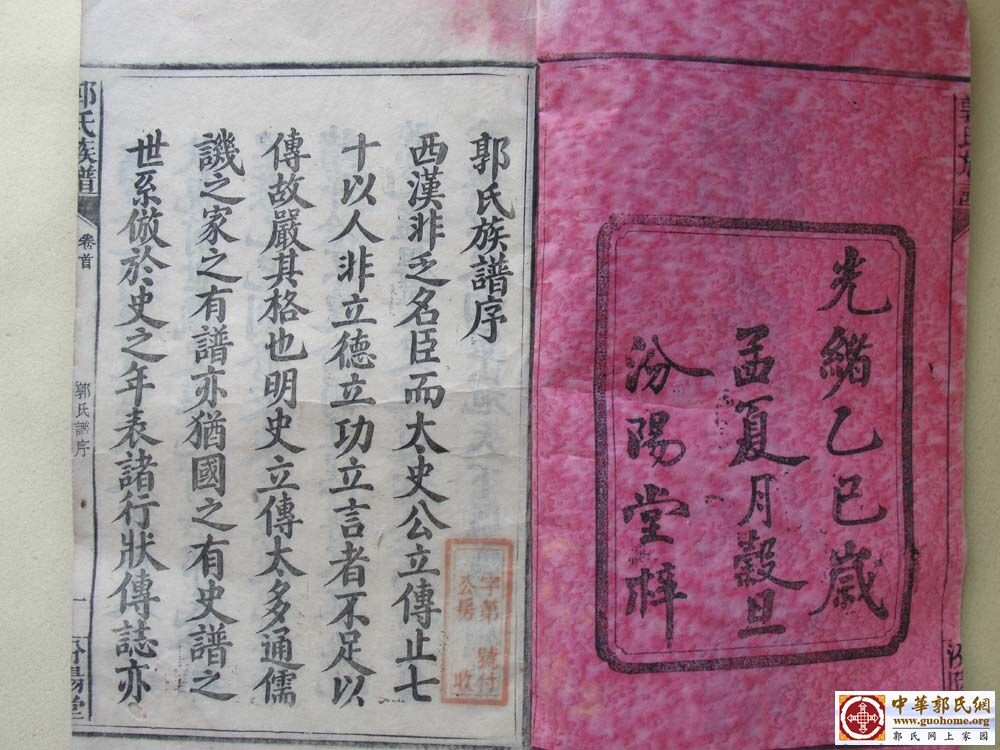 光緒乙巳歲
孟夏月穀旦
汾陽堂梓
郭氏族譜序
西漢非乏名臣而太史公立傳止七
十以人非立德立功立言者不足以
傳故嚴其格也明史立傳太多通儒
譏之家之有譜亦猶國之有史譜之
世系倣於史之年表諸行狀傳誌亦
字第 號付
公房 收
郭氏族譜
卷首
郭氏譜序
一
汾陽堂
中華郭氏網
www.guohome.org
郭氏网上家园